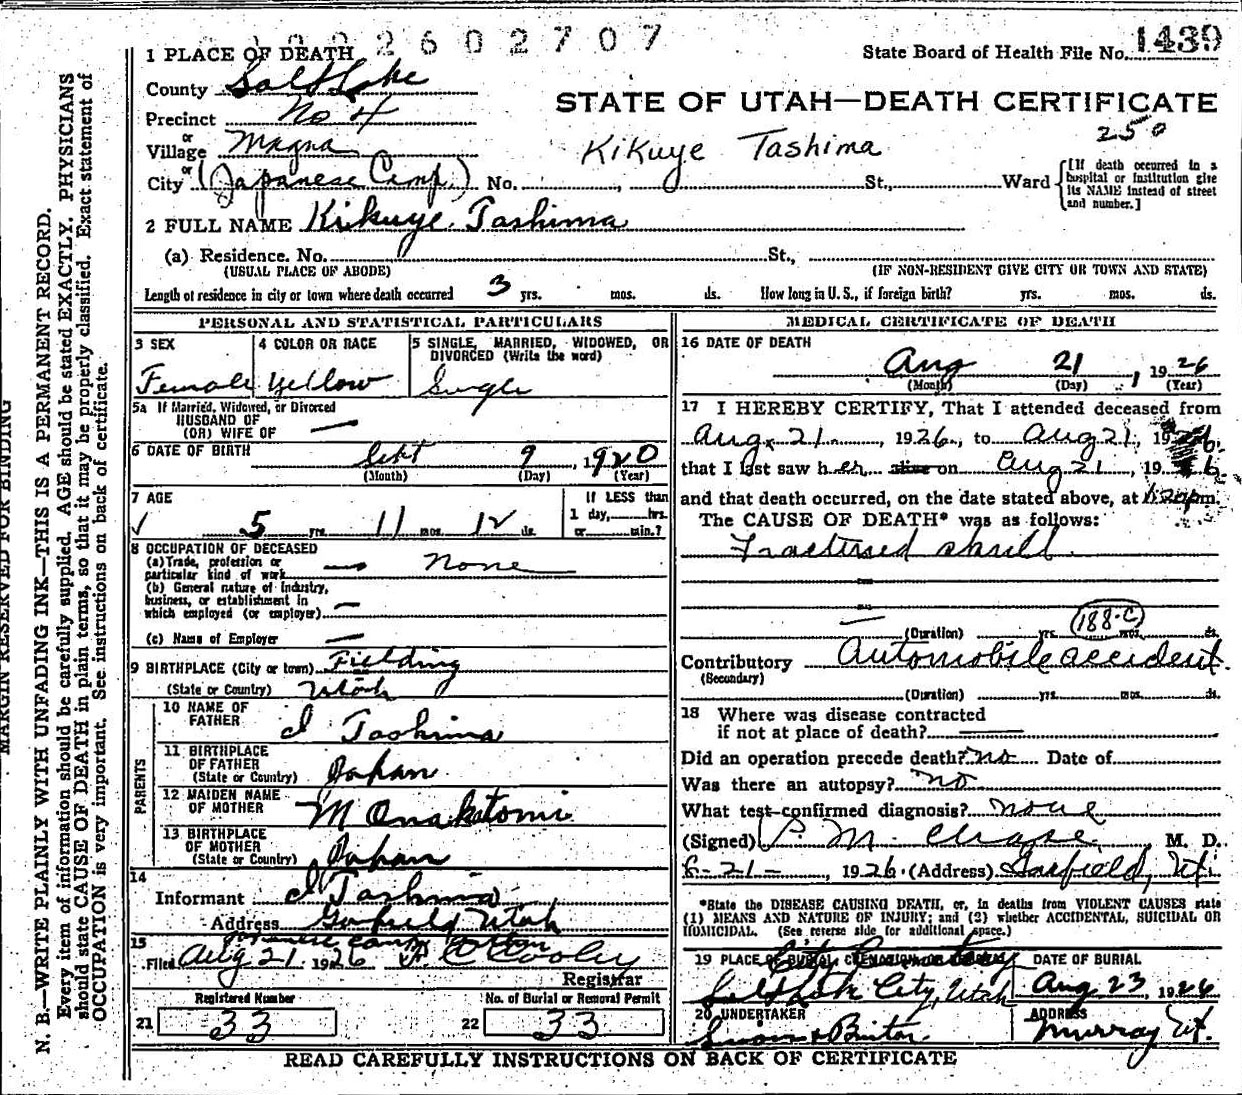 2602707
1 PLACE OF DEATH
State Board of Health File No. 1439
County Salt Lake
STATE OF UTAH—DEATH CERTIFICATE
Precinct No 4
250
or
Village Magna
Kikuye Tashima
or
City (Japanese Camp.) No. , St., Ward
[If death occurred in a hospital or institution give its NAME instead of street and number.]
2 FULL NAME Kikuye Tashima
(a) Residence. No. St.,
(USUAL PLACE OF ABODE) (IF NON-RESIDENT GIVE CITY OR TOWN AND STATE)
Length of residence in city or town where death occurred 3 yrs. mos. ds. How long in U. S., if foreign birth? yrs. mos. ds.
PERSONAL AND STATISTICAL PARTICULARS
3 SEX
Female
4 COLOR OR RACE
Yellow
5 SINGLE, MARRIED, WIDOWED, OR
DIVORCED (Write the word)
Single
5a If Married, Widowed, or Divorced
HUSBAND OF
(OR) WIFE OF —
6 DATE OF BIRTH
Sept 9, 1920
(Month) (Day) (Year)
7 AGE
5 yrs. 11 mos. 12 ds.
If LESS than
1 day, hrs.
or min.?
8 OCCUPATION OF DECEASED
(a) Trade, profession or
particular kind of work — None
(b) General nature of industry,
business, or establishment in
which employed (or employer) —
(c) Name of Employer —
9 BIRTHPLACE (City or town) Fielding
(State or Country) Utah
PARENTS
10 NAME OF
FATHER I Tashima
11 BIRTHPLACE
OF FATHER
(State or Country) Japan
12 MAIDEN NAME
OF MOTHER M Onakatomi
13 BIRTHPLACE
OF MOTHER
(State or Country) Japan
14
Informant I Tashima
Address Garfield Utah
Japanese Camp
15
Filed Aug 21 1926 Cooley
Registrar
Registered Number
21 33
No. of Burial or Removal Permit
22 33
MEDICAL CERTIFICATE OF DEATH
16 DATE OF DEATH
Aug 21, 1926
(Month) (Day) (Year)
17 I HEREBY CERTIFY, That I attended deceased from
Aug. 21, 1926, to Aug 21, 1926.
that I last saw her alive on Aug 21, 1926
and that death occurred, on the date stated above, at pm.
The CAUSE OF DEATH* was as follows:
Fractured skull
(Duration) yrs. mos. ds.
188-C
Contributory Automobile accident.
(Secondary)
(Duration) yrs. mos. ds.
18 Where was disease contracted
if not at place of death? —
Did an operation precede death? no Date of
Was there an autopsy? no
What test confirmed diagnosis? none
(Signed) P. M. Chase M. D.
8-21-, 1926. (Address) Garfield, Ut.
*State the DISEASE CAUSING DEATH, or, in deaths from VIOLENT CAUSES state
(1) MEANS AND NATURE OF INJURY; and (2) whether ACCIDENTAL, SUICIDAL OR
HOMICIDAL. (See reverse side for additional space.)
19 PLACE OF BURIAL, CREMATION, OR REMOVAL
City Cemetery
Salt Lake City, Utah
DATE OF BURIAL
Aug 23, 1926
20 UNDERTAKER
ADDRESS
Murray Ut.
READ CAREFULLY INSTRUCTIONS ON BACK OF CERTIFICATE
MARGIN RESERVED FOR BINDING
N. B.—WRITE PLAINLY WITH UNFADING INK—THIS IS A PERMANENT RECORD.
Every item of information should be carefully supplied. AGE should be stated EXACTLY. PHYSICIANS
should state CAUSE OF DEATH in plain terms, so that it may be properly classified. Exact statement of
OCCUPATION is very important. See instructions on back of certificate.